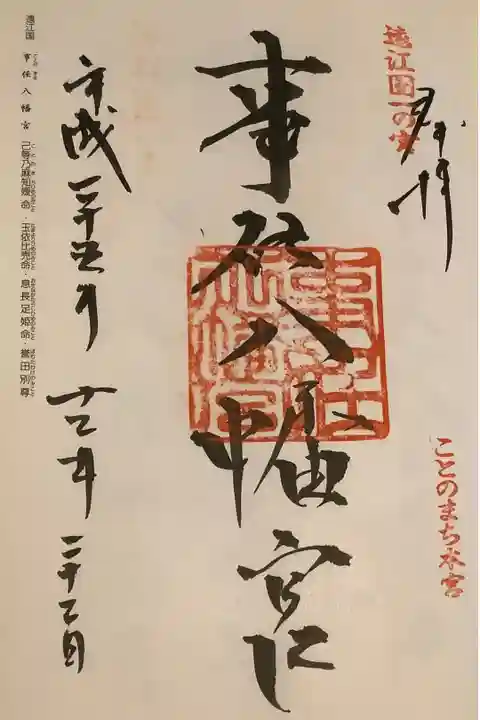 遠江国一の宮
奉拝
ことのまち本宮
事任八幡宮
事任八幡宮
平成二十五年
十二月
二十二日
遠江国 事任八幡宮 己等乃麻知媛命・玉依比売命・息長足姫命・誉田別尊